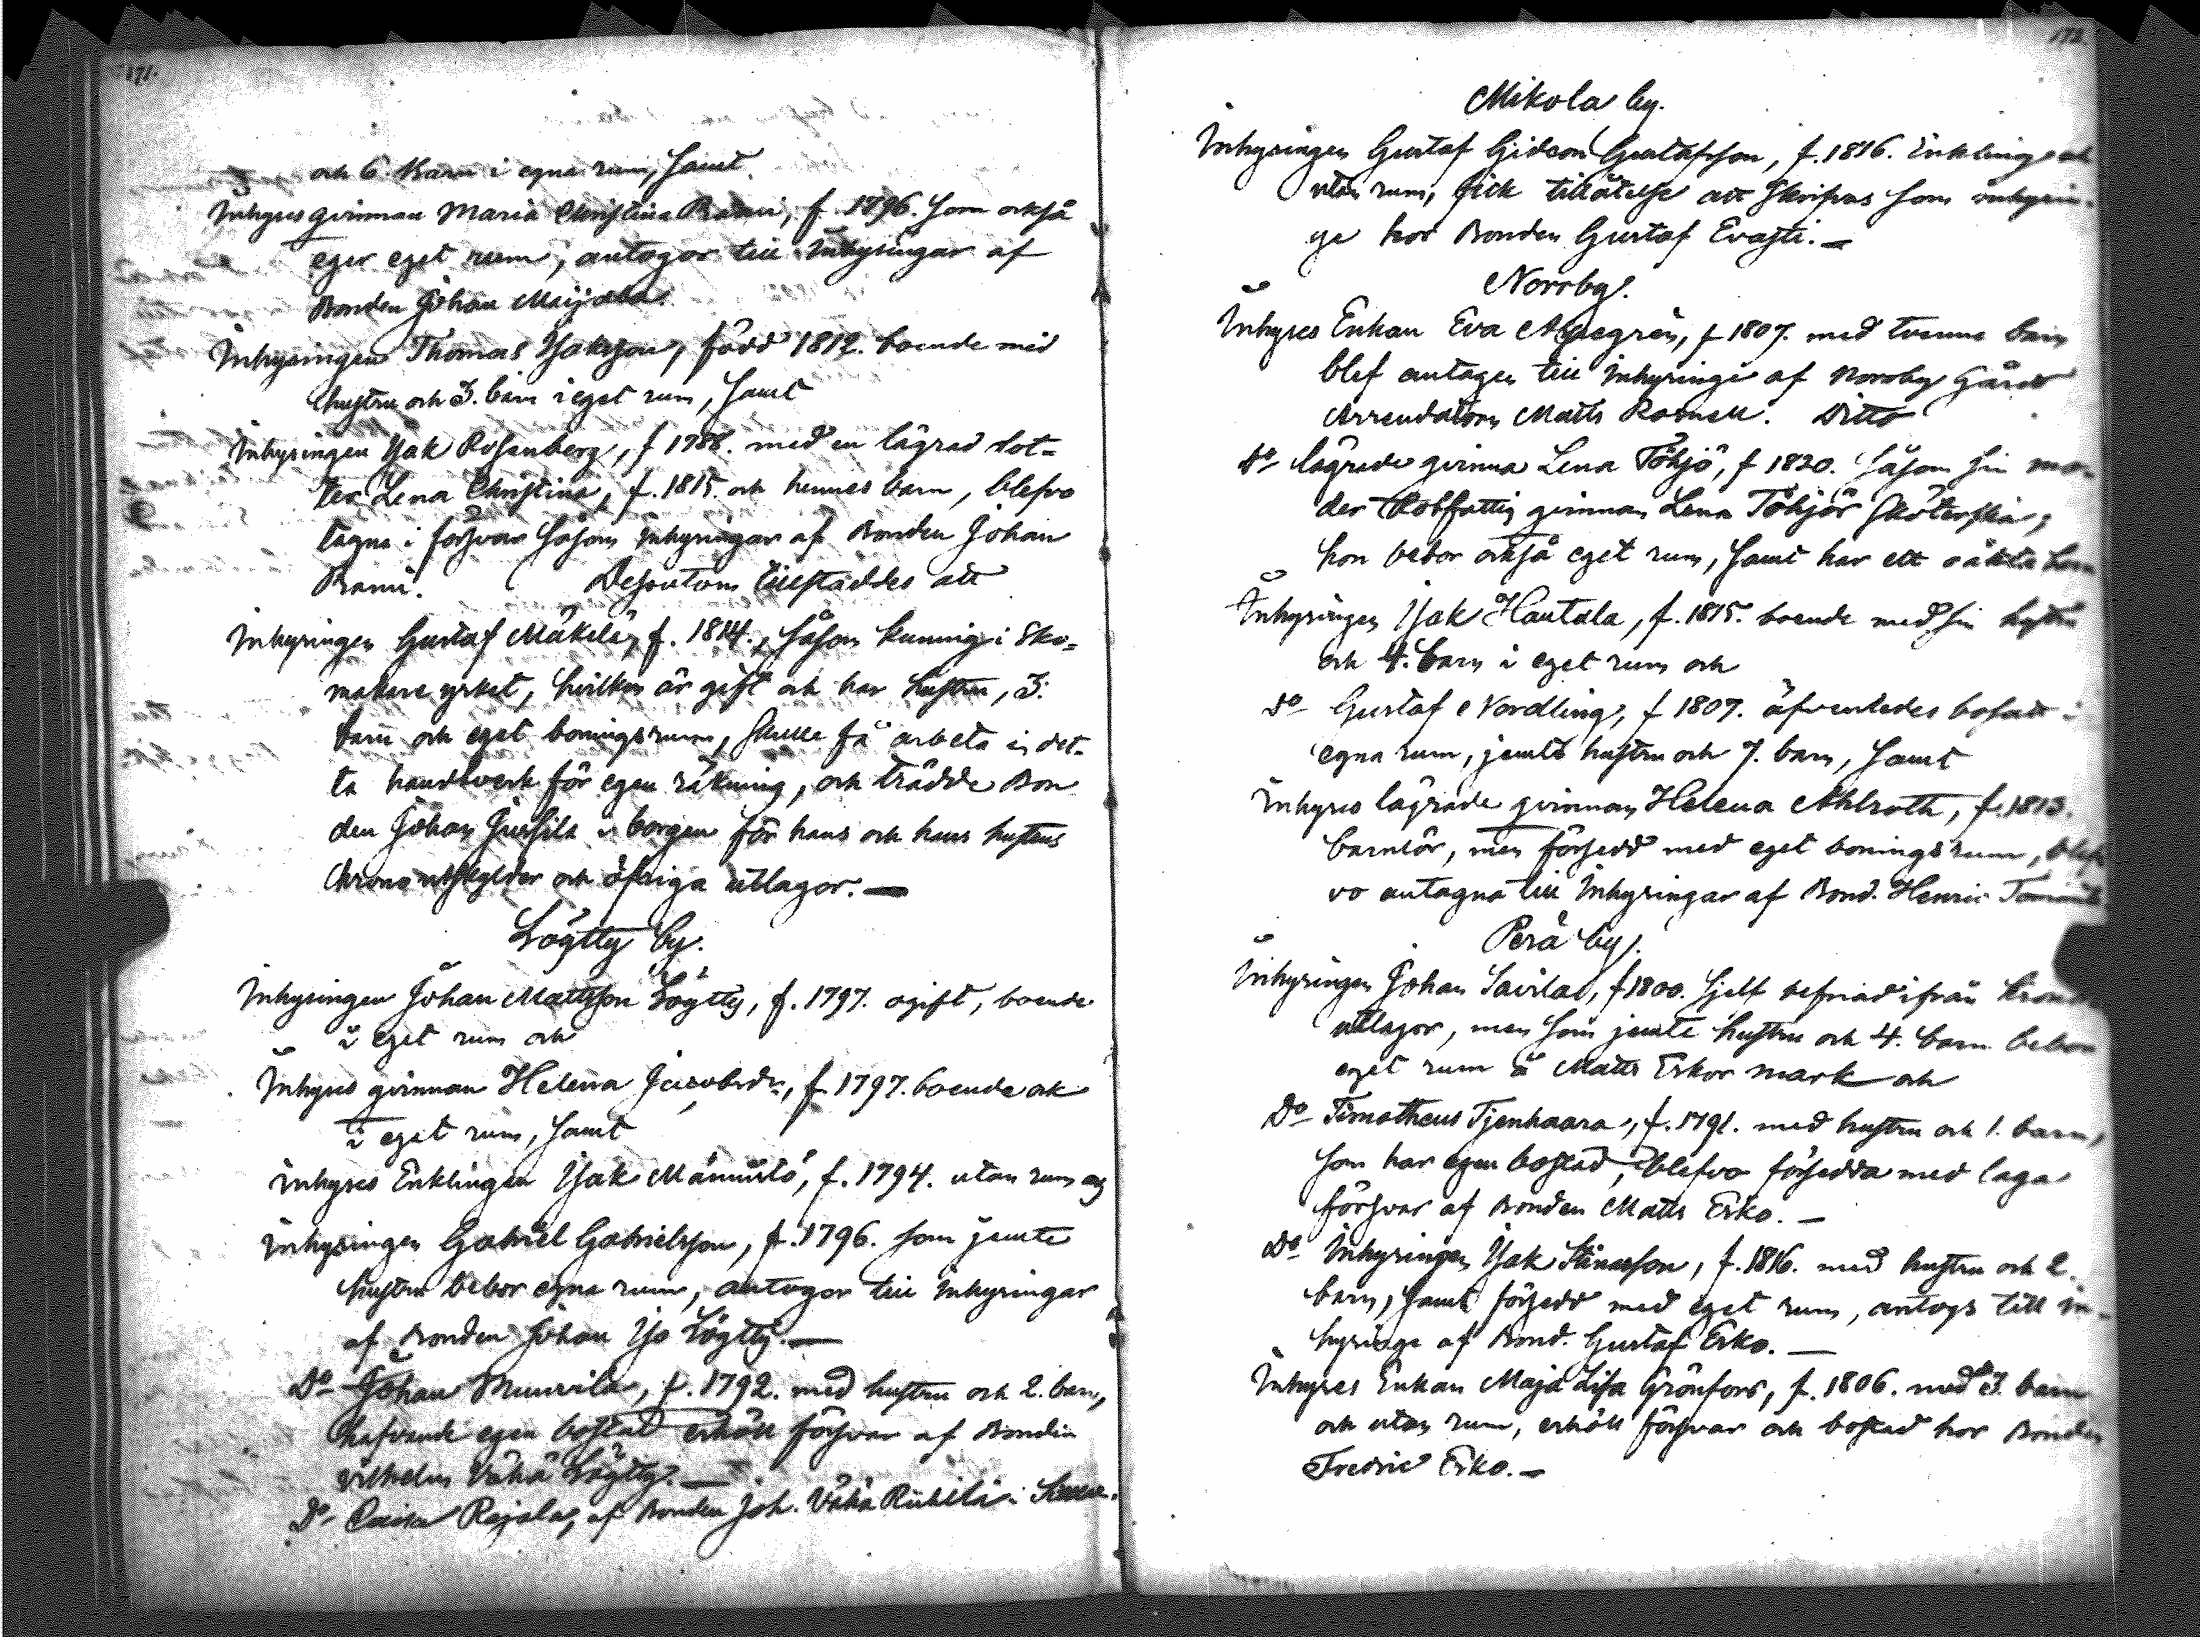 171.
och 6. Barn i egna rum, samt
Inhyses qvinnan Maria Christina Rami, f. 1796. som också
eger eget rum, antogos till Inhysingar af
Bonden Johan Maijala.
Inhysingen Thomas Isaksson, född 1812. boende med
hustru och 3. barn i eget rum, samt
Inhysingen Isak Rosenberg, f 1788. med en lägrad dot-
ter Lena Christina, f. 1815. och hennes barn, blefvo
tagne i försvar såsom Inhysingar af Bonden Johan
Rami. Dessutom tillstaddes att
Inhysingen Gustaf Mäkelä, f. 1814., såsom kunnig i Sko-
makare yrket, hvilken är gift och har hustru, 3.
barn och eget boningsrum, skulle få arbeta i det-
ta handtverk för egen räkning, och trädde Bon
den Johan Jussila i borgen för hans och hans hustrus
Chrono utskylder och öfriga utlagor. —
Lögtty by.
Inhysingen Johan Mattsson Lögtty, f. 1797. ogift, boende
i eget rum och
Inhyses qvinnan Helena Jacobsdr, f. 1797. boende ock
i eget rum, samt
Inhyses Enklingen Isak Männistö, f. 1794. utan rum og
Inhysingen Gabriel Gabrielsson, f. 1796. som jemte
hustru bebor egna rum, antogos till Inhysingar
af Bonden Johan Iso Lögtty. —
Do Johan Munsila, f. 1792. med hustru och 2. barn,
hafvande egen bostad erhöll försvar af Bonden
Wilhelm Vähä Lögtty. —
Do Caisa Rajala, af Bonden Joh. Vähä Rukkila i
172.
Mikola by.
Inhysingen Gustaf Gideon Gustafsson, f. 1816. Enkling och
utan rum, fick tillåtelse att skrifvas som inhysin-
ge hos Bonden Gustaf Evasti. —
Norrby.
Inhyses Enkan Eva Appegrén, f 1807. med tvenne barn
blef antagen till Inhysinge af Norrby Gårds
Arrendatorn Matts Rosnell. Ditto
Do lägrade qvinna Lena Töhjö, f 1820. såsom sin mo-
der Rotfattig qvinnan Lena Töhjös sköterska;
hon bebor också eget rum, samt har ett oäkta barn
Inhysingen Isak Hautala, f. 1815. boende med sin hustru
och 4. barn i eget rum och
do Gustaf Nordling, f 1807. äfvenledes bosatt i
egna rum, jemte hustru och 7. barn, samt
Inhyses lägrade qvinnan Helena Ahlroth, f. 1813.
barnlös, men försedd med eget boningsrum, blef-
vo antagna till Inhysingar af Bond. Henric
Perä by.
Inhysingen Johan Savila, f 1800. sjelf befriad ifrån Krono
utlagor, men som jemte hustru och 4. barn bebor
eget rum å Matts Erkos mark och
Do Timotheus Tjenhaara, f. 1791. med hustru och 1. barn,
som har egen bostad, blefvo försedda med laga
försvar af Bonden Matts Erko. —
Do Inhysingen Isak Stinasson, f. 1816. med hustru och 2.
barn, samt försedd med eget rum, antogs till in-
hysinge af Bond. Gustaf Erko. —
Inhyses Enkan Maja Lisa Grönfors, f. 1806. med 3. barn
och utan rum, erhöll försvar och bostad hos Bonden
Fredric Erko. —